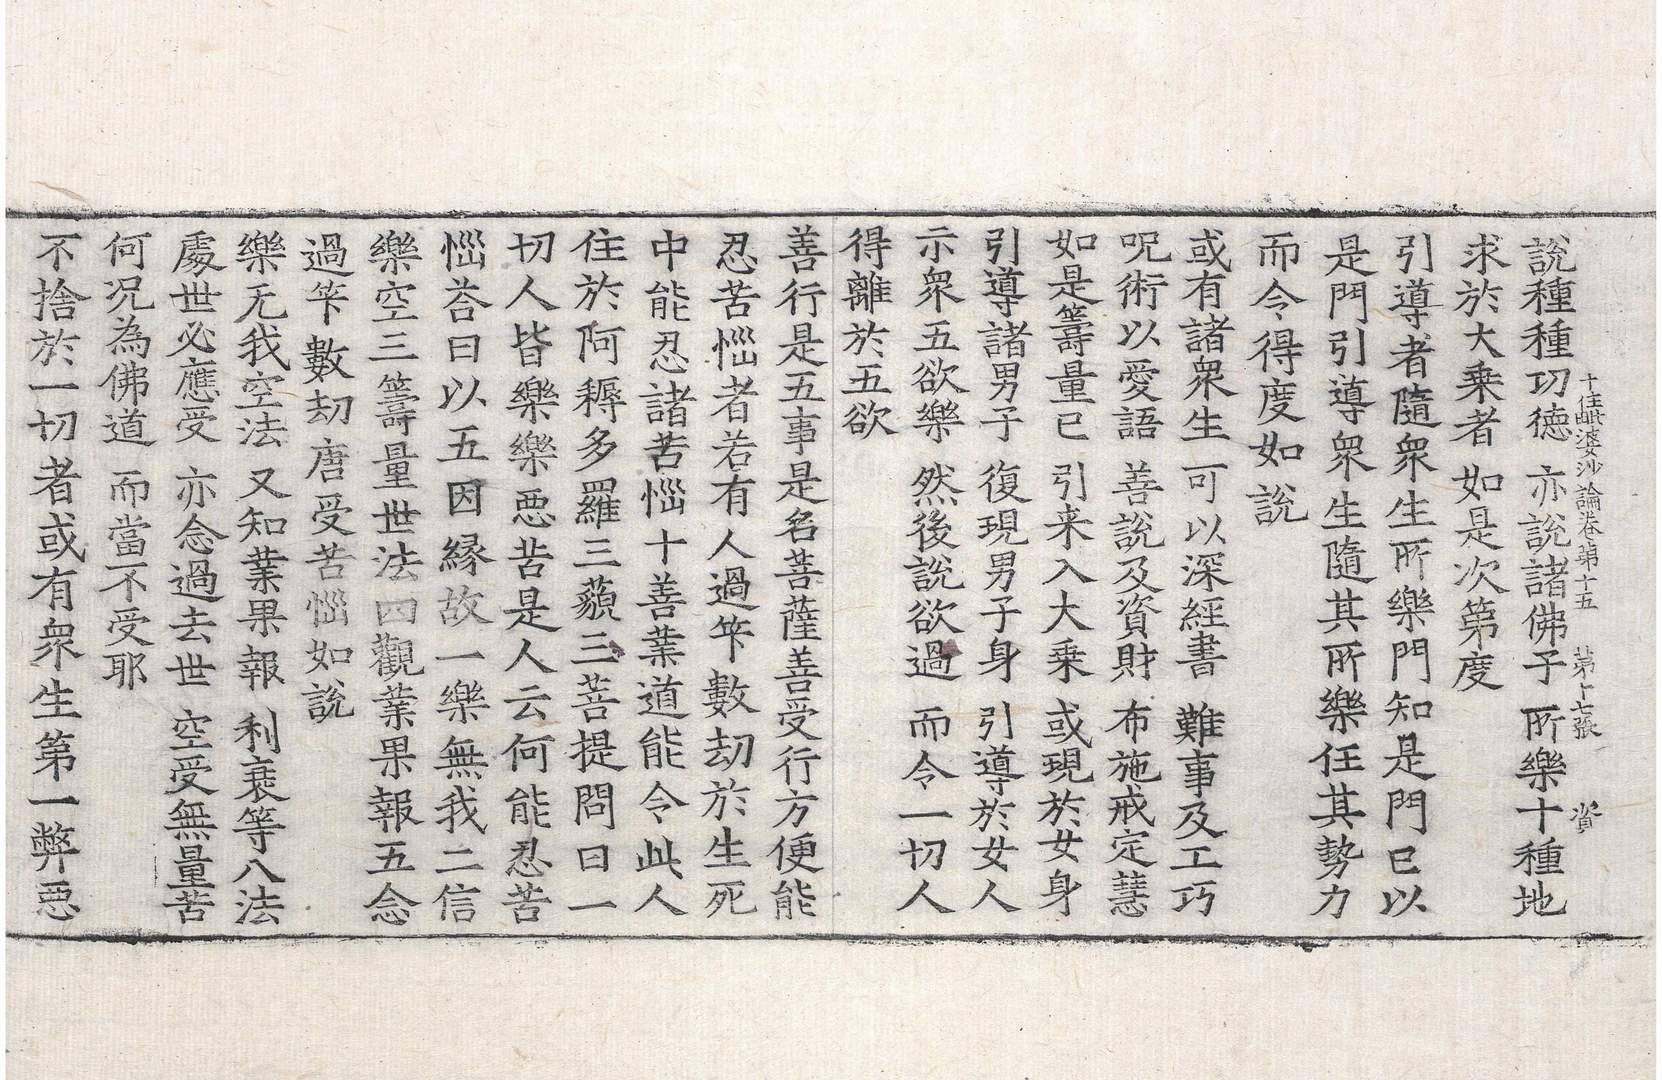 十住毗婆沙論卷第十五 第十七張 資
說種種功德 亦說諸佛子 所樂十種地
求於大乗者 如是次第度
引導者隨衆生所樂門知是門已以
是門引導衆生隨其所樂任其勢力
而令得度如說
或有諸衆生 可以深經書 難事及工巧
呪術以愛語 善說及資財 布施戒定慧
如是籌量已 引来入大乗 或現於女身
引導諸男子 復現男子身 引導於女人
示衆五欲樂 然後說欲過 而令一切人
得離於五欲
善行是五事是名菩薩善受行方便能
忍苦惱者若有人過筭數劫於生死
中能忍諸苦惱十善業道能令此人
住於阿耨多羅三藐三菩提問曰一
切人皆樂樂惡苦是人云何能忍苦
惱荅曰以五因縁故一樂無我二信
樂空三籌量世法四觀業果報五念
過筭數劫唐受苦惱如說
樂无我空法 又知業果報 利衰等八法
處世必應受 亦念過去世 空受無量苦
何况為佛道 而當不受耶
不捨於一切者或有衆生第一弊惡